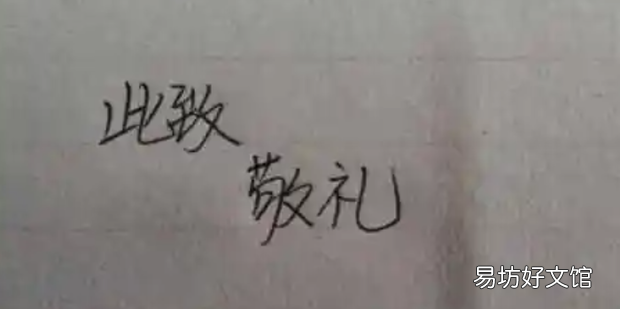 此致
敬礼
易坊好文馆